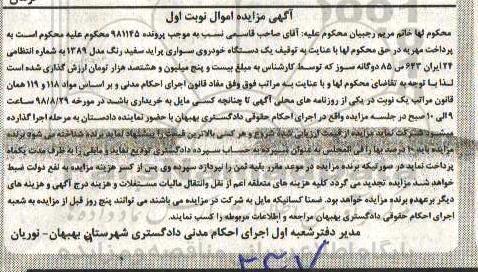 آگهی مزایده اموال نوبت اول
محکوم لها خانم مریم رجبیان محکوم علیه: آقای صاحب قاسمی نسب به موجب پرونده ۹۸۱۱۴۵ محکوم علیه محکوم است به
پرداخت مهریه در حق محکوم لها با عنایت به توقیف یک دستگاه خودروی سواری پراید سفید رنگ مدل ۱۳۸۹ به شماره انتظامی
۲۴ ایران ۶۲۳ س ۸۵ دوگانه سوز که توسط کارشناس به مبلغ بیست و پنج میلیون و هشتصد هزار تومان ارزش گذاری شده است
لذا با توجه به تقاضای محکوم لها و با عنایت به مراتب فوق وفق مفاد قانون اجرای احکام مدنی و بر اساس مواد ۱۱۸ و ۱۱۹ همان
قانون مراتب یک نوبت در یکی از روزنامه های محلی آگهی تا چنانچه کسی مایل به خریداری باشد در مورخه ۹۸/۸/۲۹ ساعت
۹ الی ۱۰ صبح در جلسه مزایده واقع در اجرای احکام حقوقی دادگستری بهبهان با حضور نماینده دادستان به مرحله اجرا گذارده
میشود شرکت نماید مزایده از قیمت ارزیابی شده شروع و هر کسی بالاترین قیمت را پیشنهاد نماید برنده شناخته می شود برنده
مزایده باید ۱۰ درصد بها را فی المجلس به عنوان سپرده به حساب سپرده دادگستری تودیع نماید و مابقی را به ظرف مدت یکماه
پرداخت نماید در صورتیکه برنده مزایده در موعد مقرر بقیه ثمن را نپردازد سپرده وی پس از کسر هزینه مزایده به نفع دولت ضبط
خواهد شد مزایده تجدید می گردد کلیه هزینه های متعلقه اعم از نقل وانتقال مالیات مستغلات و هزینه درج آگهی و هزینه های
دیگر برعهده برنده مزایده خواهد بود. ضمنا کسانیکه مایل به شرکت در مزایده می باشند می توانند پنج روز قبل از مزایده به شعبه
اجرای احکام حقوقی دادگستری بهبهان مراجعه و اطلاعات مربوطه را کسب نمایند.
مدیر دفترشعبه اول اجرای احکام مدنی دادگستری شهرستان بهبهان - نوریان